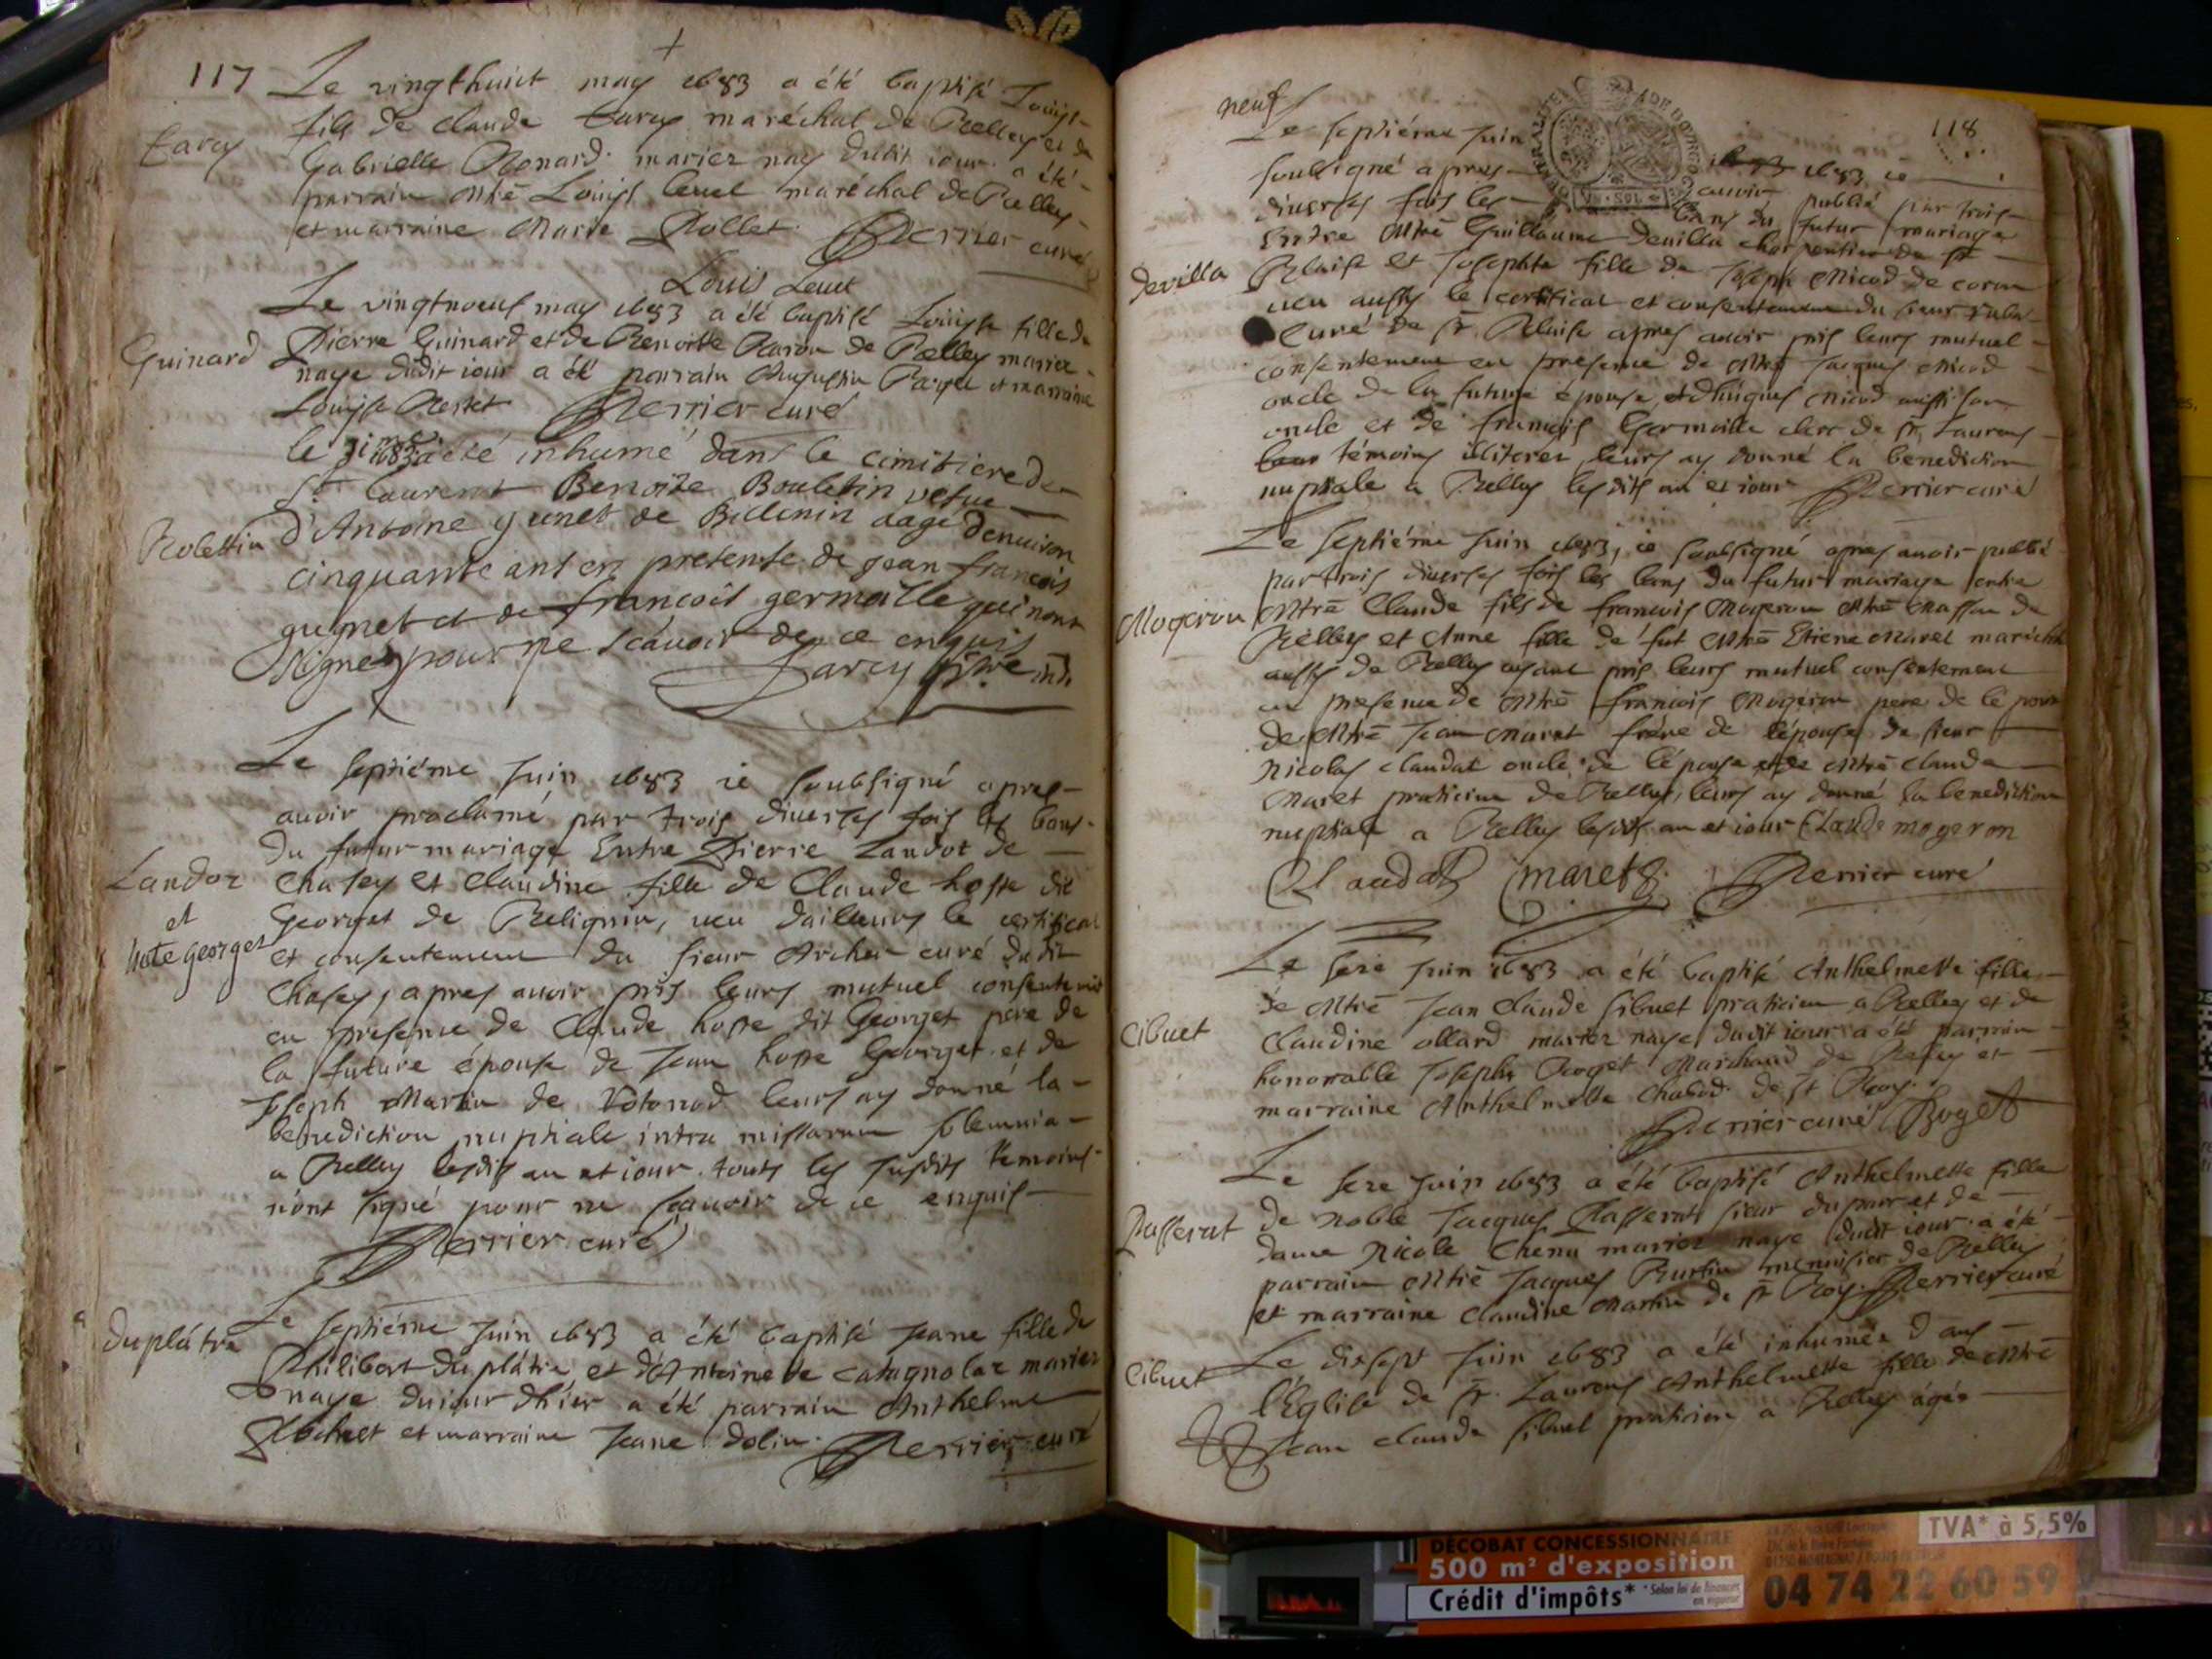 117
+
Le vingthuict may 1683 a été baptisé Louyse
fille de Claude Earcy maréchal de Belley et de
Earcy
Gabrielle Renard mariez nay dudit iour a été
parrain Mtre Louys leuet maréchal de Belley
et marraine Marie Rollet Perrier curé
Louis Leuet
Le vingtneuf may 1683 a été baptisé Louyse fille de
Guinard
Pierre Guinard et de Benoitte de Belley mariez
naye dudit iour a été parrain Augustin et marraine
Louyse Perrier curé
le 1683 a été inhumé dans le cimitiere de
St laurent Benoite Bouletin vefue
Bolettin
d'Antoine gunet de agé denuiron
cinquante ans en presence de jean francois
gugnet et de francois germaille qui nont
signez pour ne scauoir de ce enquis
Le septiéme Juin 1683 ie soubsigné apres
auoir proclamé par trois diuerses fois les bans
du futur mariage Entre Pierre Landot de
Landoz
et
hote georget
Chasey et Claudine fille de Claude hoste dit
Georget de Belignin, ueu dailleurs le certificat
et consentement du sieur Archer curé dudit
Chasey, apres auoir pris leurs mutuel consentement
en presence de Claude hoste dit Georget pere de
la future épouse de Jean hoste Georget et de
Joseph Martin de leurs ay donné la
benediction nuptiale intra missarum solemnia
a Belley lesdits an et iour touts les susdits temoins
n'ont signé pour ne scauoir de ce enquis
Perrier curé
Le septiéme Juin 1683 a été baptisé Jeane fille de
duplátre
Philibert du plátre et d'Antoinette mariez
naye du iour d'hier a été parrain Anthelme
et marraine Jeane dolin Perrier curé
118
neuf
Le septiéme Juin 1683 ie
soubsigné apres auoir publié par trois
diuerses fois les bans du futur mariage
Entre Mtre Guillaume deuilla charpentier de St
devilla
Blaise et Josephte fille de Joseph Micod de
ueu aussy le certificat et consentement du sieur
Curé de St Blaise apres auoir pris leurs mutuel
consentement en presence de Mtre Jacques Micod
oncle de la future épouse, et d'hugues Micod aussi son
oncle et de francois Germaille clerc de St Laurens
témoins illiterez leurs ay donné la benediction
nuptiale a Belley lesdits an et iour Perrier curé
Le septiéme Juin 1683, ie soubsigné apres auoir publié
par trois diuerses fois les bans du futur mariage entre
Mogeron
Mtre Claude fils de francois Mogeron Mtre Masson de
Belley et Anne fille de fut Mtre Etiene Maret maréchal
aussy de Belley ayant pris leurs mutuel consentement
en presence de Mtre francois Mogeron pere de le poux
de Mtre Jean Maret frére de lépouse, de sieur
Nicolas Claudat oncle de lépouse et de Mtre Claude
Maret praticien de Belley, leurs ay donné la benediction
nuptiale a Belley lesdits an et iour Claude mogeron
Claudat maret Perrier curé
Le seze Juin 1683 a été baptisé Anthelmette fille
de Mtre Jean Claude Sibuet praticien a Belley et de
Cibuet
Claudine ollard mariez naye dudit iour a été parrain
honorable Joseph Roget Marchand de Belley et
marraine Anthelmette Chabod de St
Perrier curé Roget
Le seze Juin 1683 a été baptisé Anthelmette fille
Passerat
de noble Jacques Passerat sieur du parc et de
dame Nicole Chenu mariez naye dudit iour a été
parrain Mtre Jacques menuisier de Belley
et marraine Claudine Martin de St Perrier curé
Le dixsept Juin 1683 a été inhumée dans
Cibuet
l'Eglise de St. Laurens Anthelmette fille de Mtre
Jean Claude Sibuet praticien a Belley agée
DÉCOBAT CONCESSIONNAIRE
500 m² d'exposition
Crédit d'impôts*
TVA* à 5,5%
04 74 22 60 59